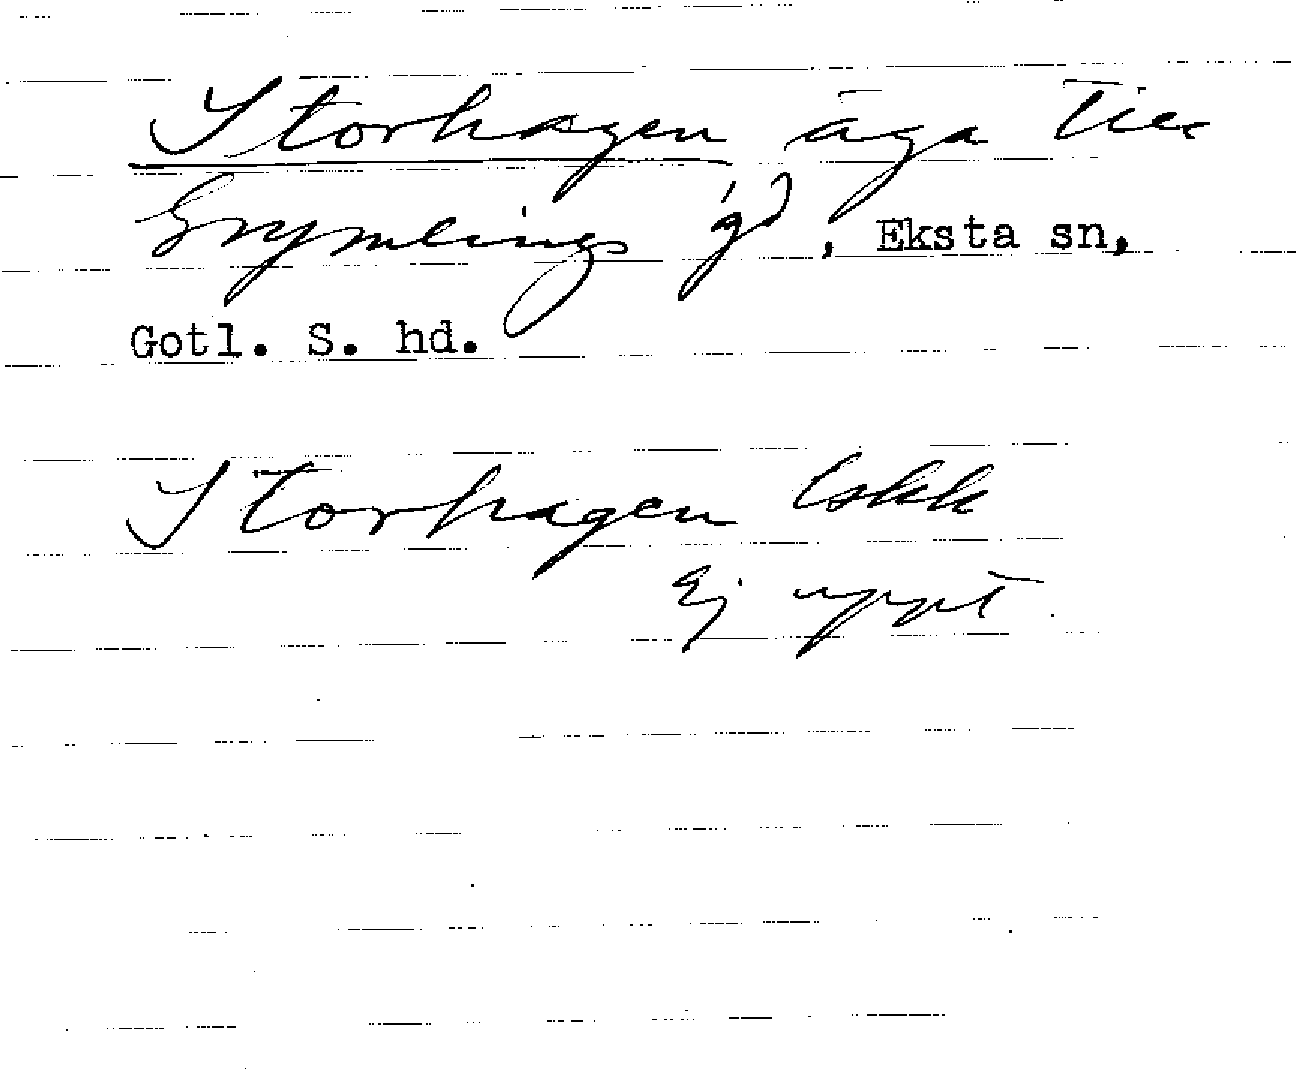 Storhagen äga till
Grymlings gd, Eksta sn,
Gotl. S. hd.
Storhagen Lskk
Ej uppt.